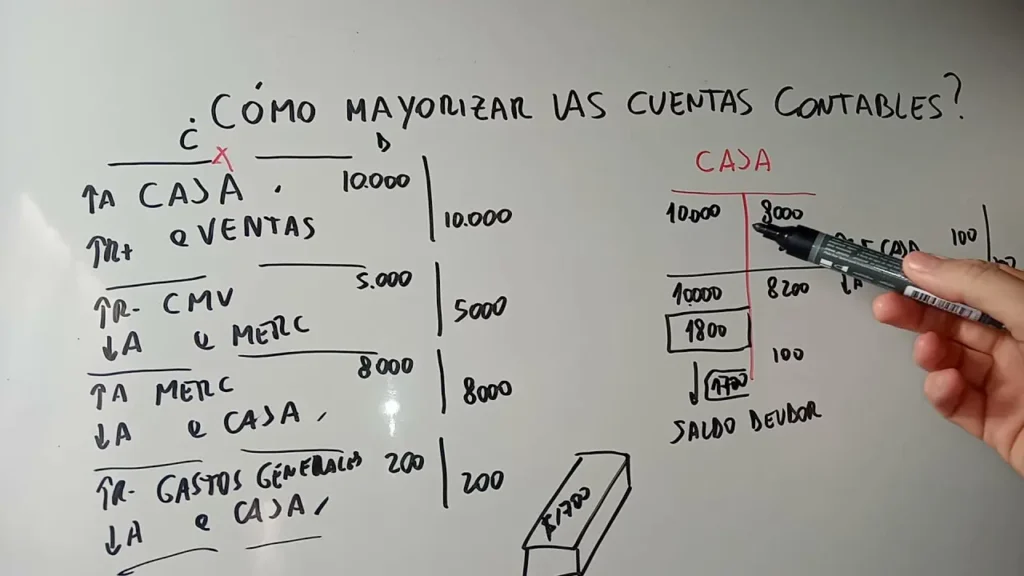 ¿CÓMO MAYORIZAR LAS CUENTAS CONTABLES?
X D
↑A CAJA 10.000
↑R+ a VENTAS 10.000
↑R- CMV 5.000
↓A a MERC 5000
↑A MERC 8000
↓A a CAJA 8000
↑R- GASTOS GENERALES 200
↓A a CAJA 200
CAJA
10.000 8000
CAJA 100
10000 8200 ↓A
1800
100
1700
SALDO DEUDOR
$1700